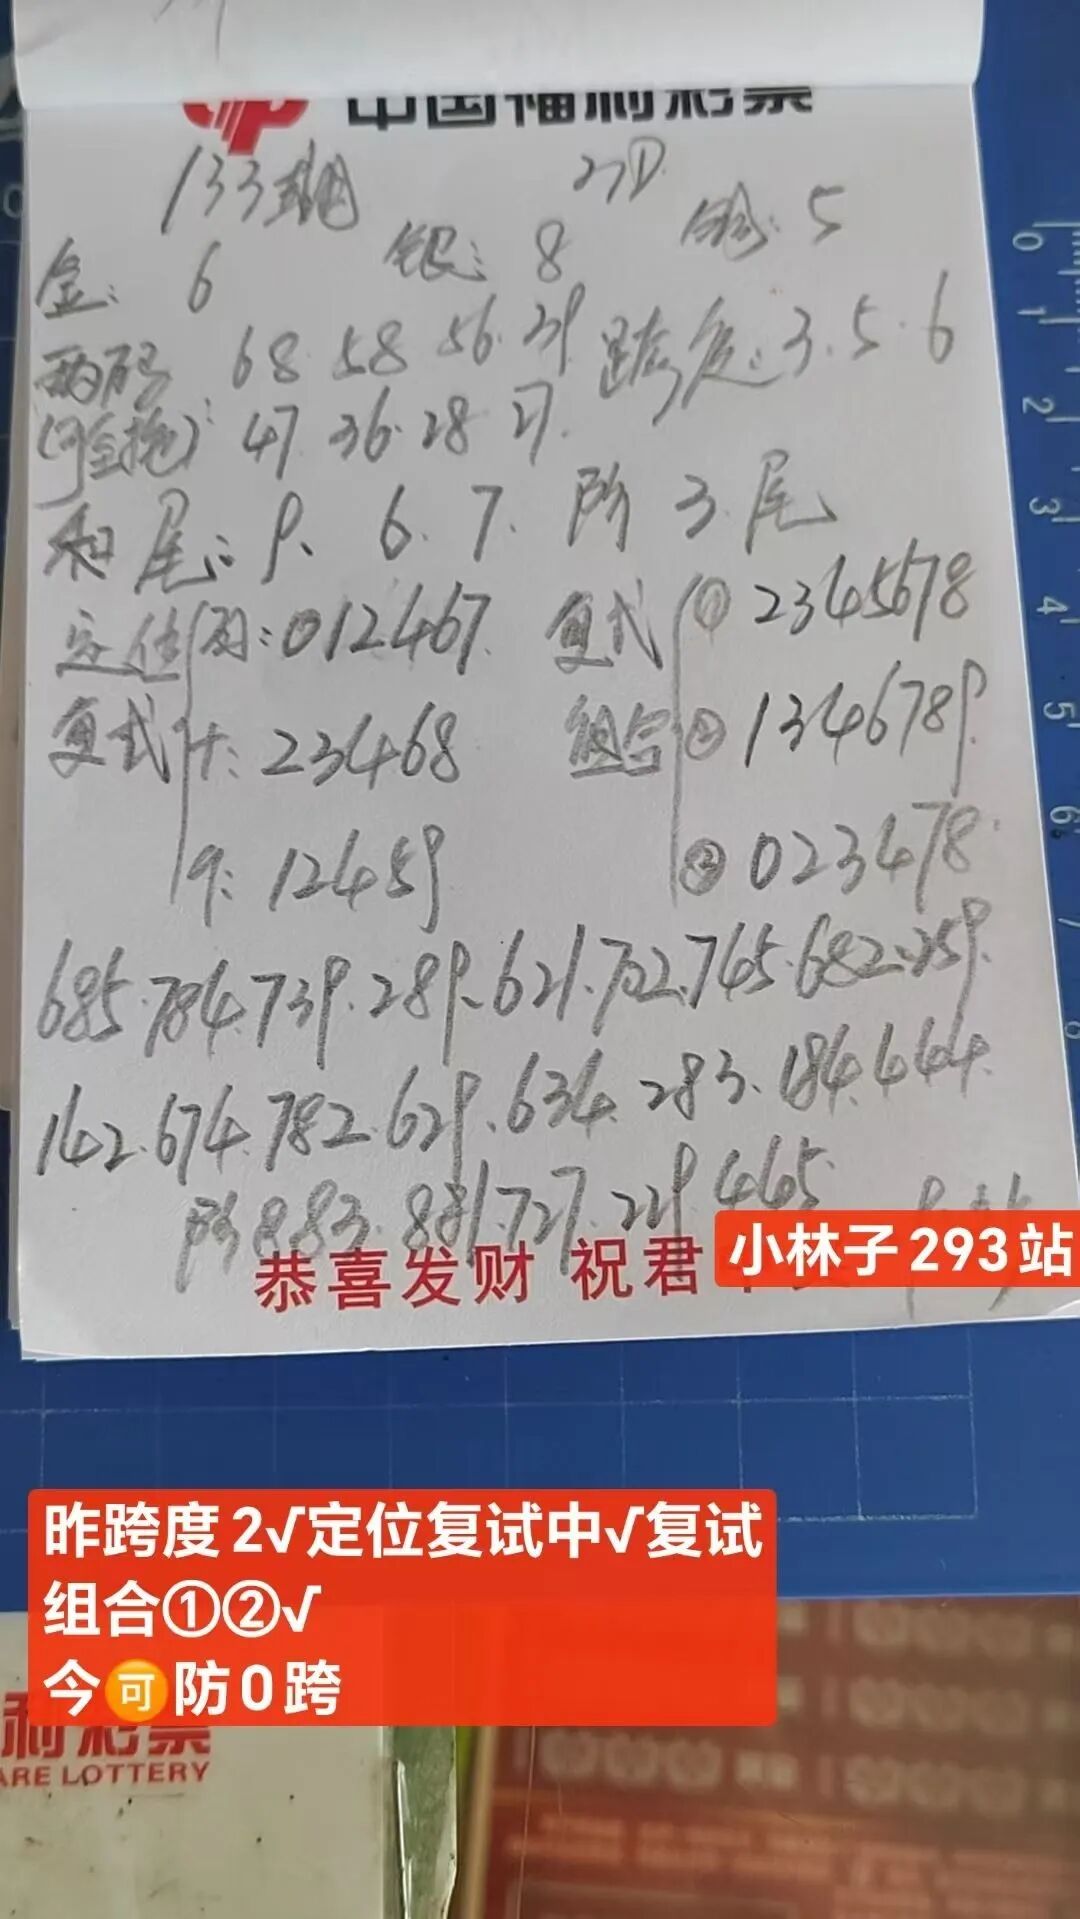 中国福利彩票
133期 3D
金: 6 银: 8 铜: 5
两码 68. 58 56. 39 跨度: 3. 5. 6
47. 36. 28 27.
和尾: 9、 6. 7. 防 3. 尾
定位 百: 012467. 复式 ① 2345678
复式 十: 23468 组合 ② 1346789.
个: 12459 ③ 023478.
685.784.739.289.621.702.745.682.259.
142.674.782.629.634.283.184.444.
防 883. 881.727.229.465.
恭喜发财 祝君
小林子293站
昨跨度2√定位复试中√复试
组合①②√
今🉑防0跨
利彩票
ARE LOTTERY